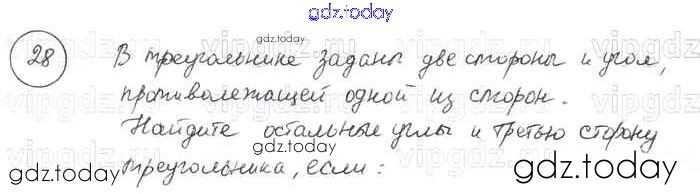 gdz.today
28 В треугольнике заданы две стороны и угол,
gdz.today
противолежащей одной из сторон.
Найдите остальные углы и третью сторону
gdz.today
треугольника, если:
gdz.today
vipgdz.ru